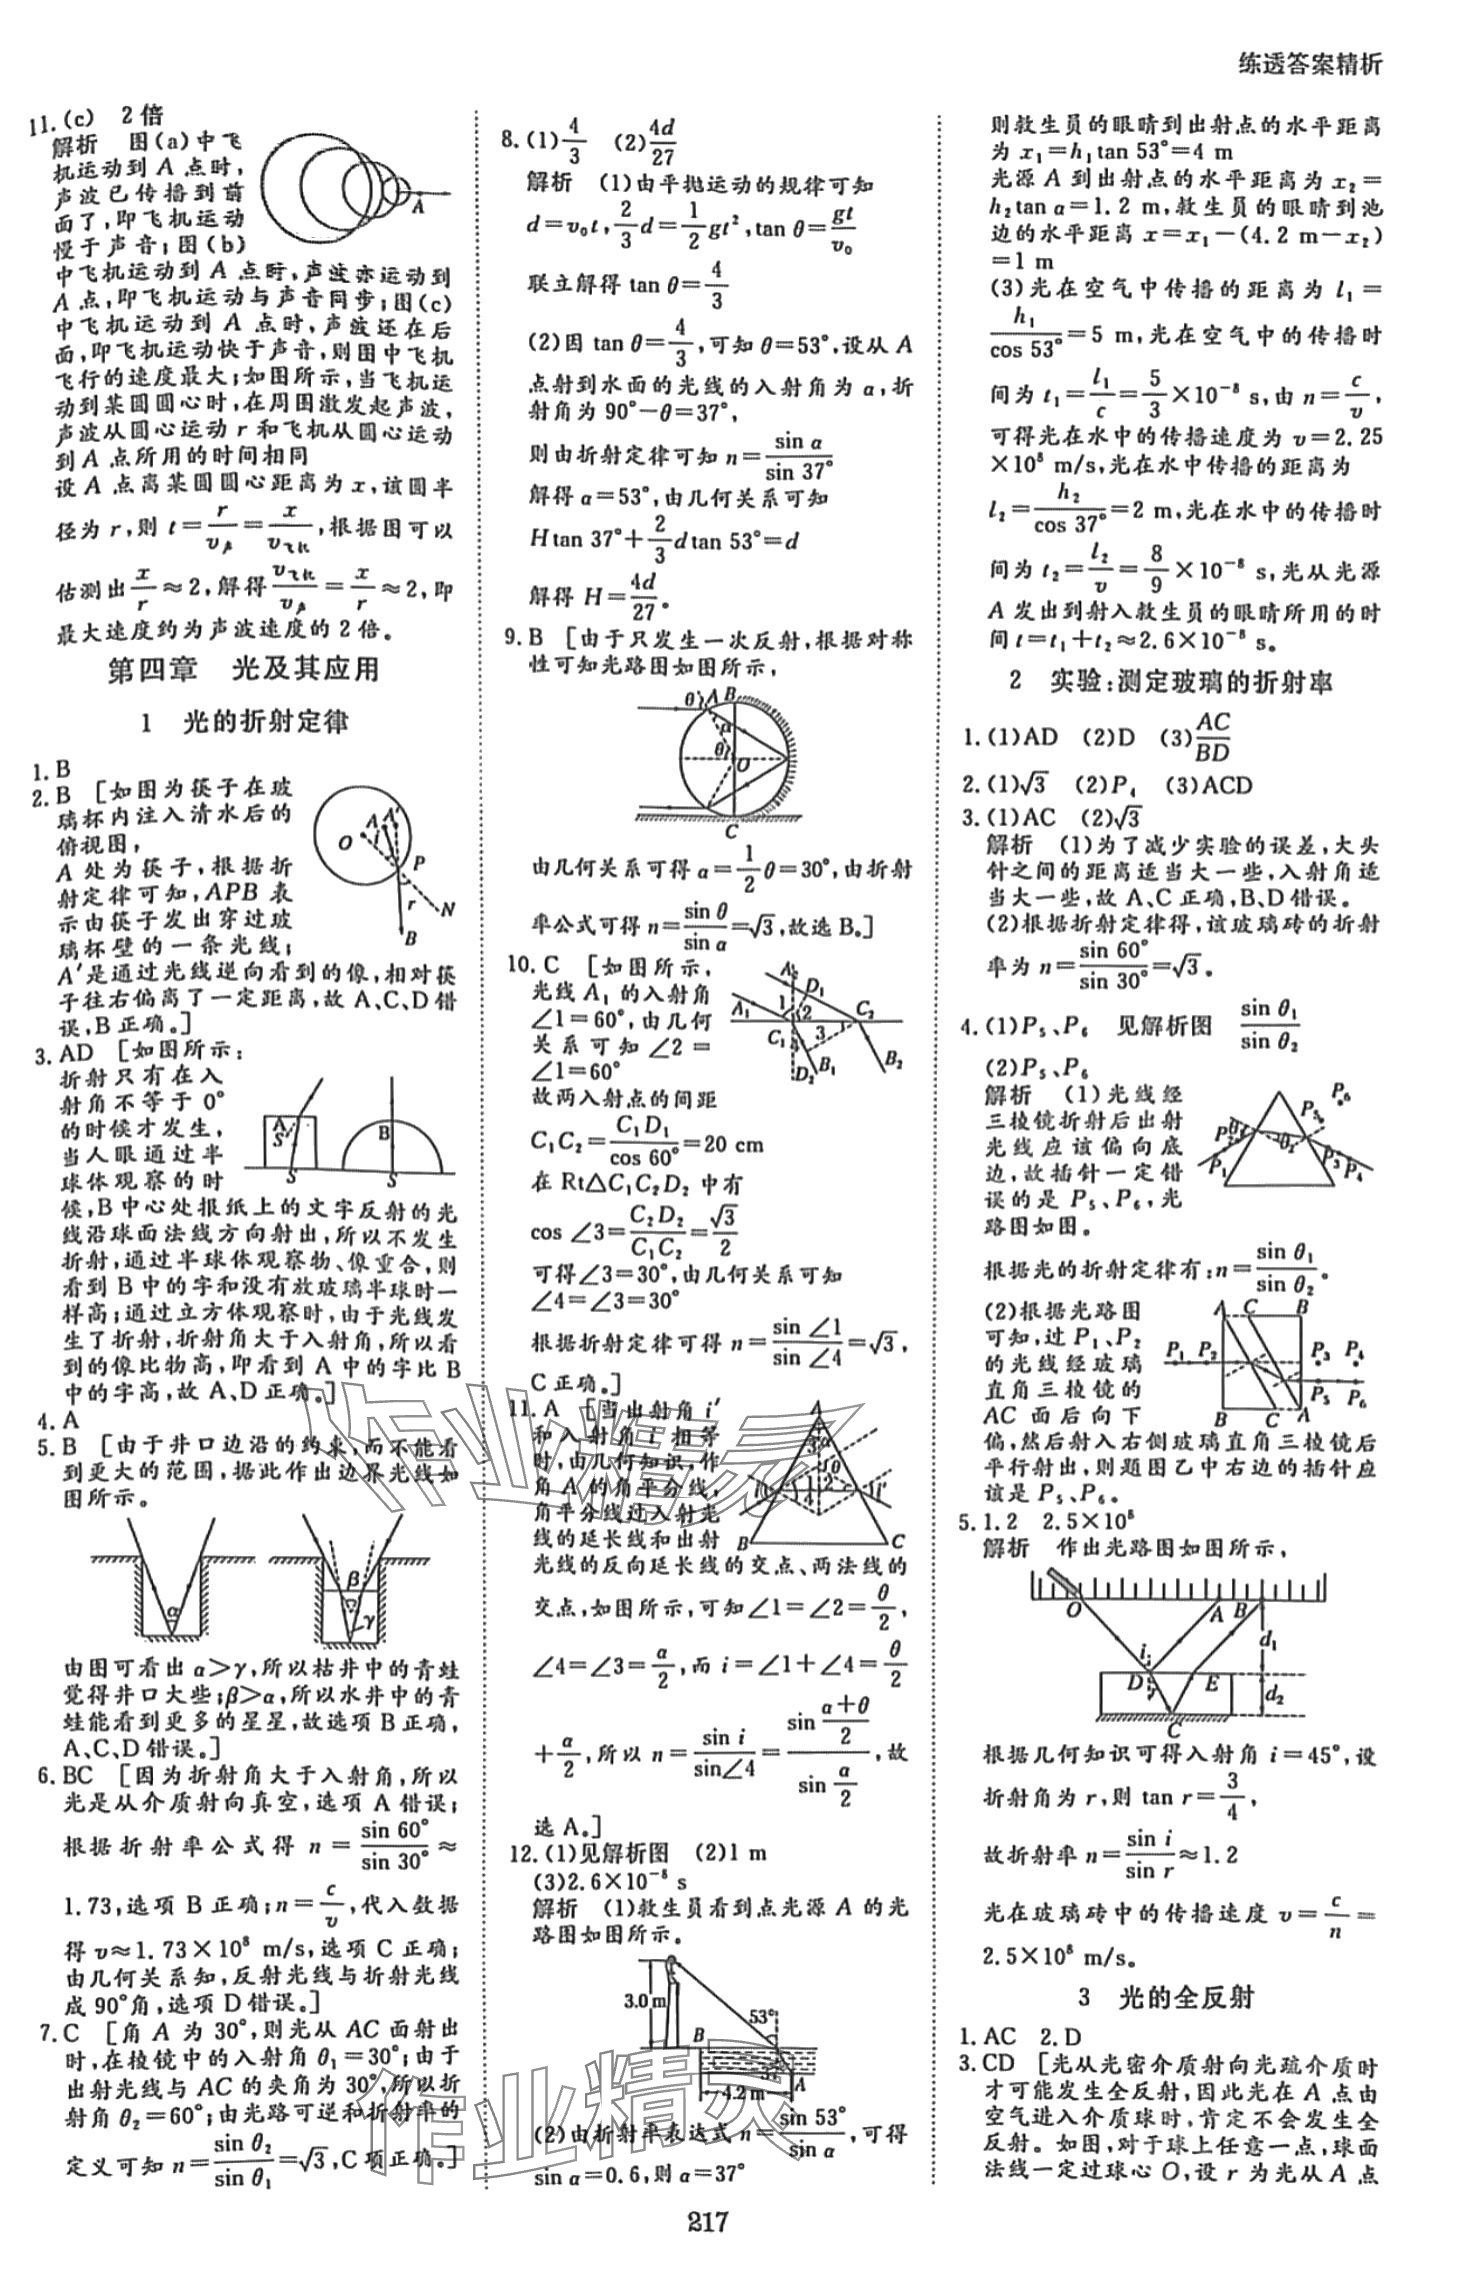 练透答案精析
11.(c) 2倍
解析 图(a)中飞
机运动到A点时,
声波已传播到前
面了,即飞机运动
慢于声音;图(b)
中飞机运动到A点时,声波亦运动到
A点,即飞机运动与声音同步;图(c)
中飞机运动到A点时,声波还在后
面,即飞机运动快于声音,则图中飞机
飞行的速度最大;如图所示,当飞机运
动到某圆圆心时,在周围激发起声波,
声波从圆心运动r和飞机从圆心运动
到A点所用的时间相同
设A点离某圆圆心距离为x,该圆半
径为r,则t=r/v声=x/v飞机,根据图可以
估测出x/r≈2,解得v飞机/v声=x/r≈2,即
最大速度约为声波速度的2倍。
A
第四章 光及其应用
1 光的折射定律
1.B
2.B [如图为筷子在玻
璃杯内注入清水后的
俯视图,
A处为筷子,根据折
射定律可知,APB表
示由筷子发出穿过玻
璃杯壁的一条光线;
A′是通过光线逆向看到的像,相对筷
子往右偏离了一定距离,故A、C、D错
误,B正确。]
O A A′ i P r N B
3.AD [如图所示:
折射只有在入
射角不等于0°
的时候才发生,
当人眼通过半
球体观察的时
候,B中心处报纸上的文字反射的光
线沿球面法线方向射出,所以不发生
折射,通过半球体观察物、像重合,则
看到B中的字和没有放玻璃半球时一
样高;通过立方体观察时,由于光线发
生了折射,折射角大于入射角,所以看
到的像比物高,即看到A中的字比B
中的字高,故A、D正确。]
A S′ S B S
4.A
5.B [由于井口边沿的约束,而不能看
到更大的范围,据此作出边界光线如
图所示。
α β γ
由图可看出α>γ,所以枯井中的青蛙
觉得井口大些;β>α,所以水井中的青
蛙能看到更多的星星,故选项B正确,
A、C、D错误。]
6.BC [因为折射角大于入射角,所以
光是从介质射向真空,选项A错误;
根据折射率公式得n=sin 60°/sin 30°≈
1.73,选项B正确;n=c/v,代入数据
得v≈1.73×10⁸ m/s,选项C正确;
由几何关系知,反射光线与折射光线
成90°角,选项D错误。]
7.C [角A为30°,则光从AC面射出
时,在棱镜中的入射角θ₁=30°;由于
出射光线与AC的夹角为30°,所以折
射角θ₂=60°;由光路可逆和折射率的
定义可知n=sin θ₂/sin θ₁=√3,C项正确。]
8.(1)4/3 (2)4d/27
解析 (1)由平抛运动的规律可知
d=v₀t,2/3d=1/2gt²,tan θ=gt/v₀
联立解得tan θ=4/3
(2)因tan θ=4/3,可知θ=53°,设从A
点射到水面的光线的入射角为α,折
射角为90°−θ=37°,
则由折射定律可知n=sin α/sin 37°
解得α=53°,由几何关系可知
Htan 37°+2/3dtan 53°=d
解得H=4d/27。
9.B [由于只发生一次反射,根据对称
性可知光路图如图所示,
θ A B α θ O C
由几何关系可得α=1/2θ=30°,由折射
率公式可得n=sin θ/sin α=√3,故选B。]
10.C [如图所示,
光线A₁的入射角
∠1=60°,由几何
关系可知∠2=
∠1=60°
故两入射点的间距
C₁C₂=C₁D₁/cos 60°=20 cm
在Rt△C₁C₂D₂中有
cos ∠3=C₂D₂/C₁C₂=√3/2
可得∠3=30°,由几何关系可知
∠4=∠3=30°
根据折射定律可得n=sin ∠1/sin ∠4=√3,
C正确。]
A₂ D₁ A₁ 1 2 C₂ C₁ 3 B₁ B₂ D₂
11.A [当出射角i′
和入射角i相等
时,由几何知识,作
角A的角平分线,
角平分线过入射光
线的延长线和出射
光线的反向延长线的交点、两法线的
交点,如图所示,可知∠1=∠2=θ/2,
∠4=∠3=α/2,而i=∠1+∠4=θ/2
+α/2,所以n=sin i/sin∠4=sin (α+θ)/2/sin α/2,故
选A。]
A 3 α θ i 1 2 4 i′ B C
12.(1)见解析图 (2)1 m
(3)2.6×10⁻⁸ s
解析 (1)救生员看到点光源A的光
路图如图所示。
3.0 m 53° B A 4.2 m
(2)由折射率表达式n=sin 53°/sin α,可得
sin α=0.6,则α=37°
则救生员的眼睛到出射点的水平距离
为x₁=h₁tan 53°=4 m
光源A到出射点的水平距离为x₂=
h₂tan α=1.2 m,救生员的眼睛到池
边的水平距离x=x₁−(4.2 m−x₂)
=1 m
(3)光在空气中传播的距离为l₁=
h₁/cos 53°=5 m,光在空气中的传播时
间为t₁=l₁/c=5/3×10⁻⁸ s,由n=c/v,
可得光在水中的传播速度为v=2.25
×10⁸ m/s,光在水中传播的距离为
l₂=h₂/cos 37°=2 m,光在水中的传播时
间为t₂=l₂/v=8/9×10⁻⁸ s,光从光源
A发出到射入救生员的眼睛所用的时
间t=t₁+t₂≈2.6×10⁻⁸ s。
2 实验:测定玻璃的折射率
1.(1)AD (2)D (3)AC/BD
2.(1)√3 (2)P₄ (3)ACD
3.(1)AC (2)√3
解析 (1)为了减少实验的误差,大头
针之间的距离适当大一些,入射角适
当大一些,故A、C正确,B、D错误。
(2)根据折射定律得,该玻璃砖的折射
率为n=sin 60°/sin 30°=√3。
4.(1)P₅、P₆ 见解析图 sin θ₁/sin θ₂
(2)P₅、P₆
解析 (1)光线经
三棱镜折射后出射
光线应该偏向底
边,故插针一定错
误的是P₅、P₆,光
路图如图。
P₆ P₅ P₂ θ₁ θ₂ P₁ P₃ P₄
根据光的折射定律有:n=sin θ₁/sin θ₂。
(2)根据光路图
可知,过P₁、P₂
的光线经玻璃
直角三棱镜的
AC面后向下
偏,然后射入右侧玻璃直角三棱镜后
平行射出,则题图乙中右边的插针应
该是P₅、P₆。
A C B P₁ P₂ P₃ P₄ P₅ P₆ B C A
5.1.2 2.5×10⁸
解析 作出光路图如图所示,
O A B d₁ i D r E d₂ C
根据几何知识可得入射角i=45°,设
折射角为r,则tan r=3/4,
故折射率n=sin i/sin r≈1.2
光在玻璃砖中的传播速度v=c/n=
2.5×10⁸ m/s。
3 光的全反射
1.AC 2.D
3.CD [光从光密介质射向光疏介质时
才可能发生全反射,因此光在A点由
空气进入介质球时,肯定不会发生全
反射。如图,对于球上任意一点,球面
法线一定过球心O,设r为光从A点
217
作业精灵
作业精灵